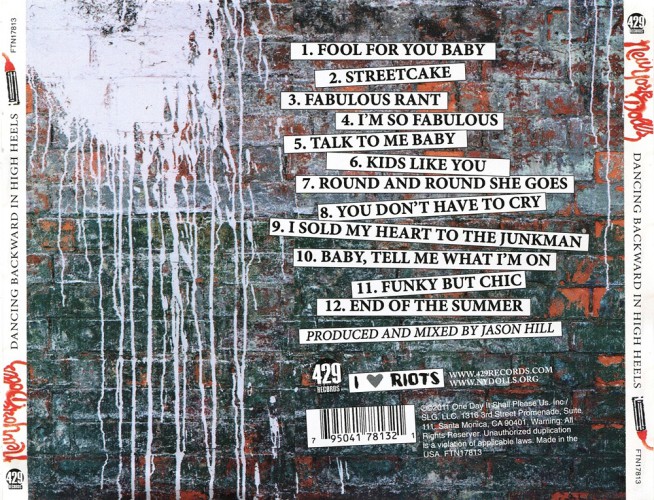 FTN17813
DANCING BACKWARD IN HIGH HEELS
New York Dolls
429
RECORDS
1. FOOL FOR YOU BABY
2. STREETCAKE
3. FABULOUS RANT
4. I'M SO FABULOUS
5. TALK TO ME BABY
6. KIDS LIKE YOU
7. ROUND AND ROUND SHE GOES
8. YOU DON'T HAVE TO CRY
9. I SOLD MY HEART TO THE JUNKMAN
10. BABY, TELL ME WHAT I'M ON
11. FUNKY BUT CHIC
12. END OF THE SUMMER
PRODUCED AND MIXED BY JASON HILL
429
RECORDS
I ♥ RIOTS
WWW.429RECORDS.COM
WWW.NYDOLLS.ORG
7 95041 78132 1
©2011 One Day It Shall Please Us, Inc./
SLG, LLC. 1316 3rd Street Promenade, Suite
111, Santa Monica, CA 90401. Warning: All
Rights Reserver. Unauthorized duplication
is a violation of applicable laws. Made in the
USA. FTN17813
429
RECORDS
New York Dolls
DANCING BACKWARD IN HIGH HEELS
FTN17813